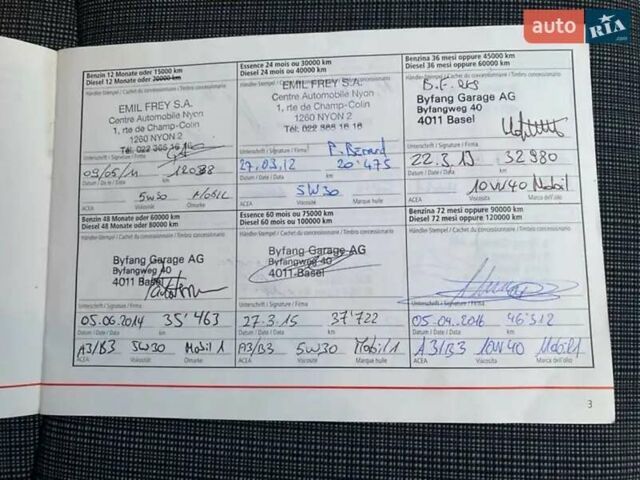 auto RIA .com
Benzin 12 Monate oder 15000 km
Diesel 12 Monate oder 20000 km
Händler-Stempel / Cachet du concessionnaire / Timbro concessionario
EMIL FREY S.A.
Centre Automobile Nyon
1, rte de Champ-Colin
1260 NYON 2
Tél. 022 365 16 16
Unterschrift / Signature / Firma
09/05/11 12088
Datum / Date / Data km
5W30
ACEA Viscosité Ölmarke
Essence 24 mois ou 30000 km
Diesel 24 mois ou 40000 km
Händler-Stempel / Cachet du concessionnaire / Timbro concessionario
EMIL FREY S.A.
Centre Automobile Nyon
1, rte de Champ-Colin
1260 NYON 2
Tél. 022 365 16 16
Unterschrift / Signature / Firma
P. Benard
27.03.12 20'475
Datum / Date / Data km
5W30
ACEA Viscosité Marque huile
Benzina 36 mesi oppure 45000 km
Diesel 36 mesi oppure 60000 km
Händler-Stempel / Cachet du concessionnaire / Timbro concessionario
Byfang Garage AG
Byfangweg 40
4011 Basel
Unterschrift / Signature / Firma
22.3.13 32980
Datum / Date / Data km
10W40 Mobil
ACEA Viscosità Marca dell'olio
Benzin 48 Monate oder 60000 km
Diesel 48 Monate oder 80000 km
Händler-Stempel / Cachet du concessionnaire / Timbro concessionario
Byfang Garage AG
Byfangweg 40
4011 Basel
Unterschrift / Signature / Firma
05.06.2014 35'463
Datum / Date / Data km
A3/B3 5W30 Mobil 1
ACEA Viscosität Ölmarke
Essence 60 mois ou 75000 km
Diesel 60 mois ou 100000 km
Händler-Stempel / Cachet du concessionnaire / Timbro concessionario
Byfang Garage AG
Byfangweg 40
4011 Basel
Unterschrift / Signature / Firma
27.3.15 37'722
Datum / Date / Data km
A3/B3 5W30 Mobil 1
ACEA Viscosité Marque huile
Benzina 72 mesi oppure 90000 km
Diesel 72 mesi oppure 120000 km
Händler-Stempel / Cachet du concessionnaire / Timbro concessionario
Unterschrift / Signature / Firma
05.04.2016 46'312
Datum / Date / Data km
A3/B3 10W40 Mobil 1
ACEA Viscosità Marca dell'olio
3